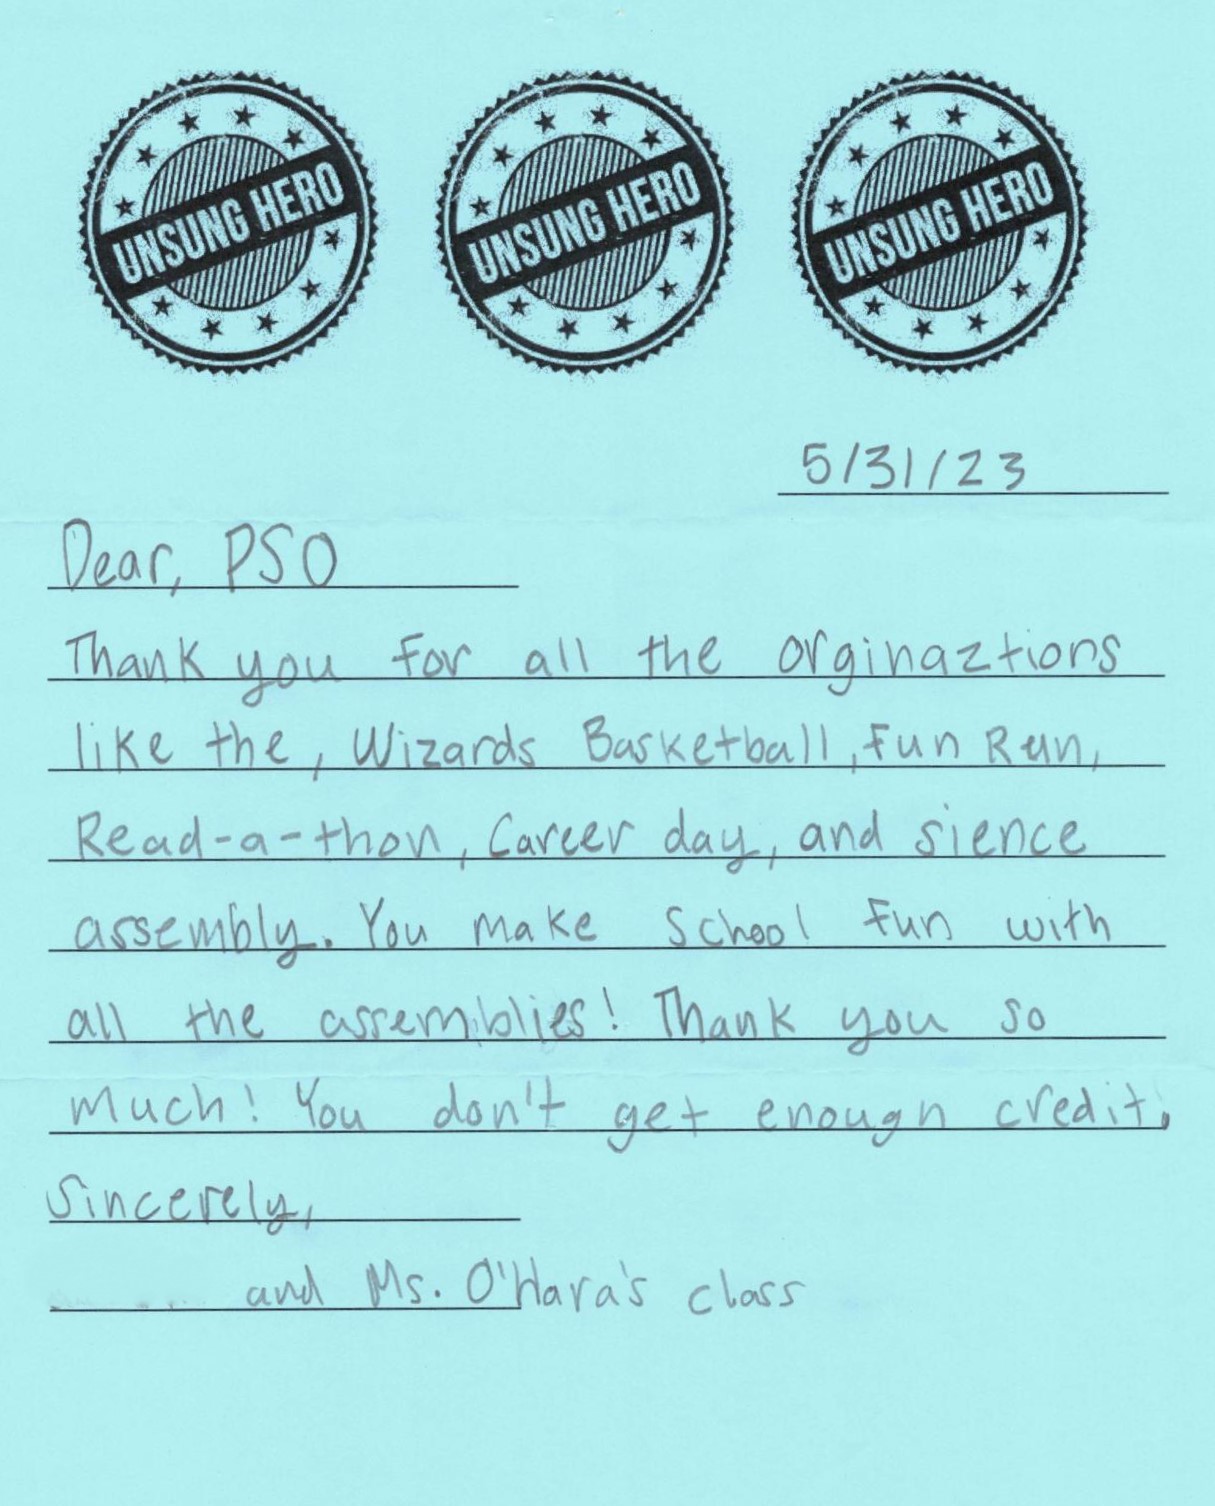 UNSUNG HERO UNSUNG HERO UNSUNG HERO
5/31/23
Dear, PSO
Thank you for all the orginaztions
like the, Wizards Basketball, Fun Run,
Read-a-thon, Career day, and sience
assembly. You make school fun with
all the assemblies! Thank you so
much! You don't get enough credit.
Sincerely,
and Ms. O'Hara's class